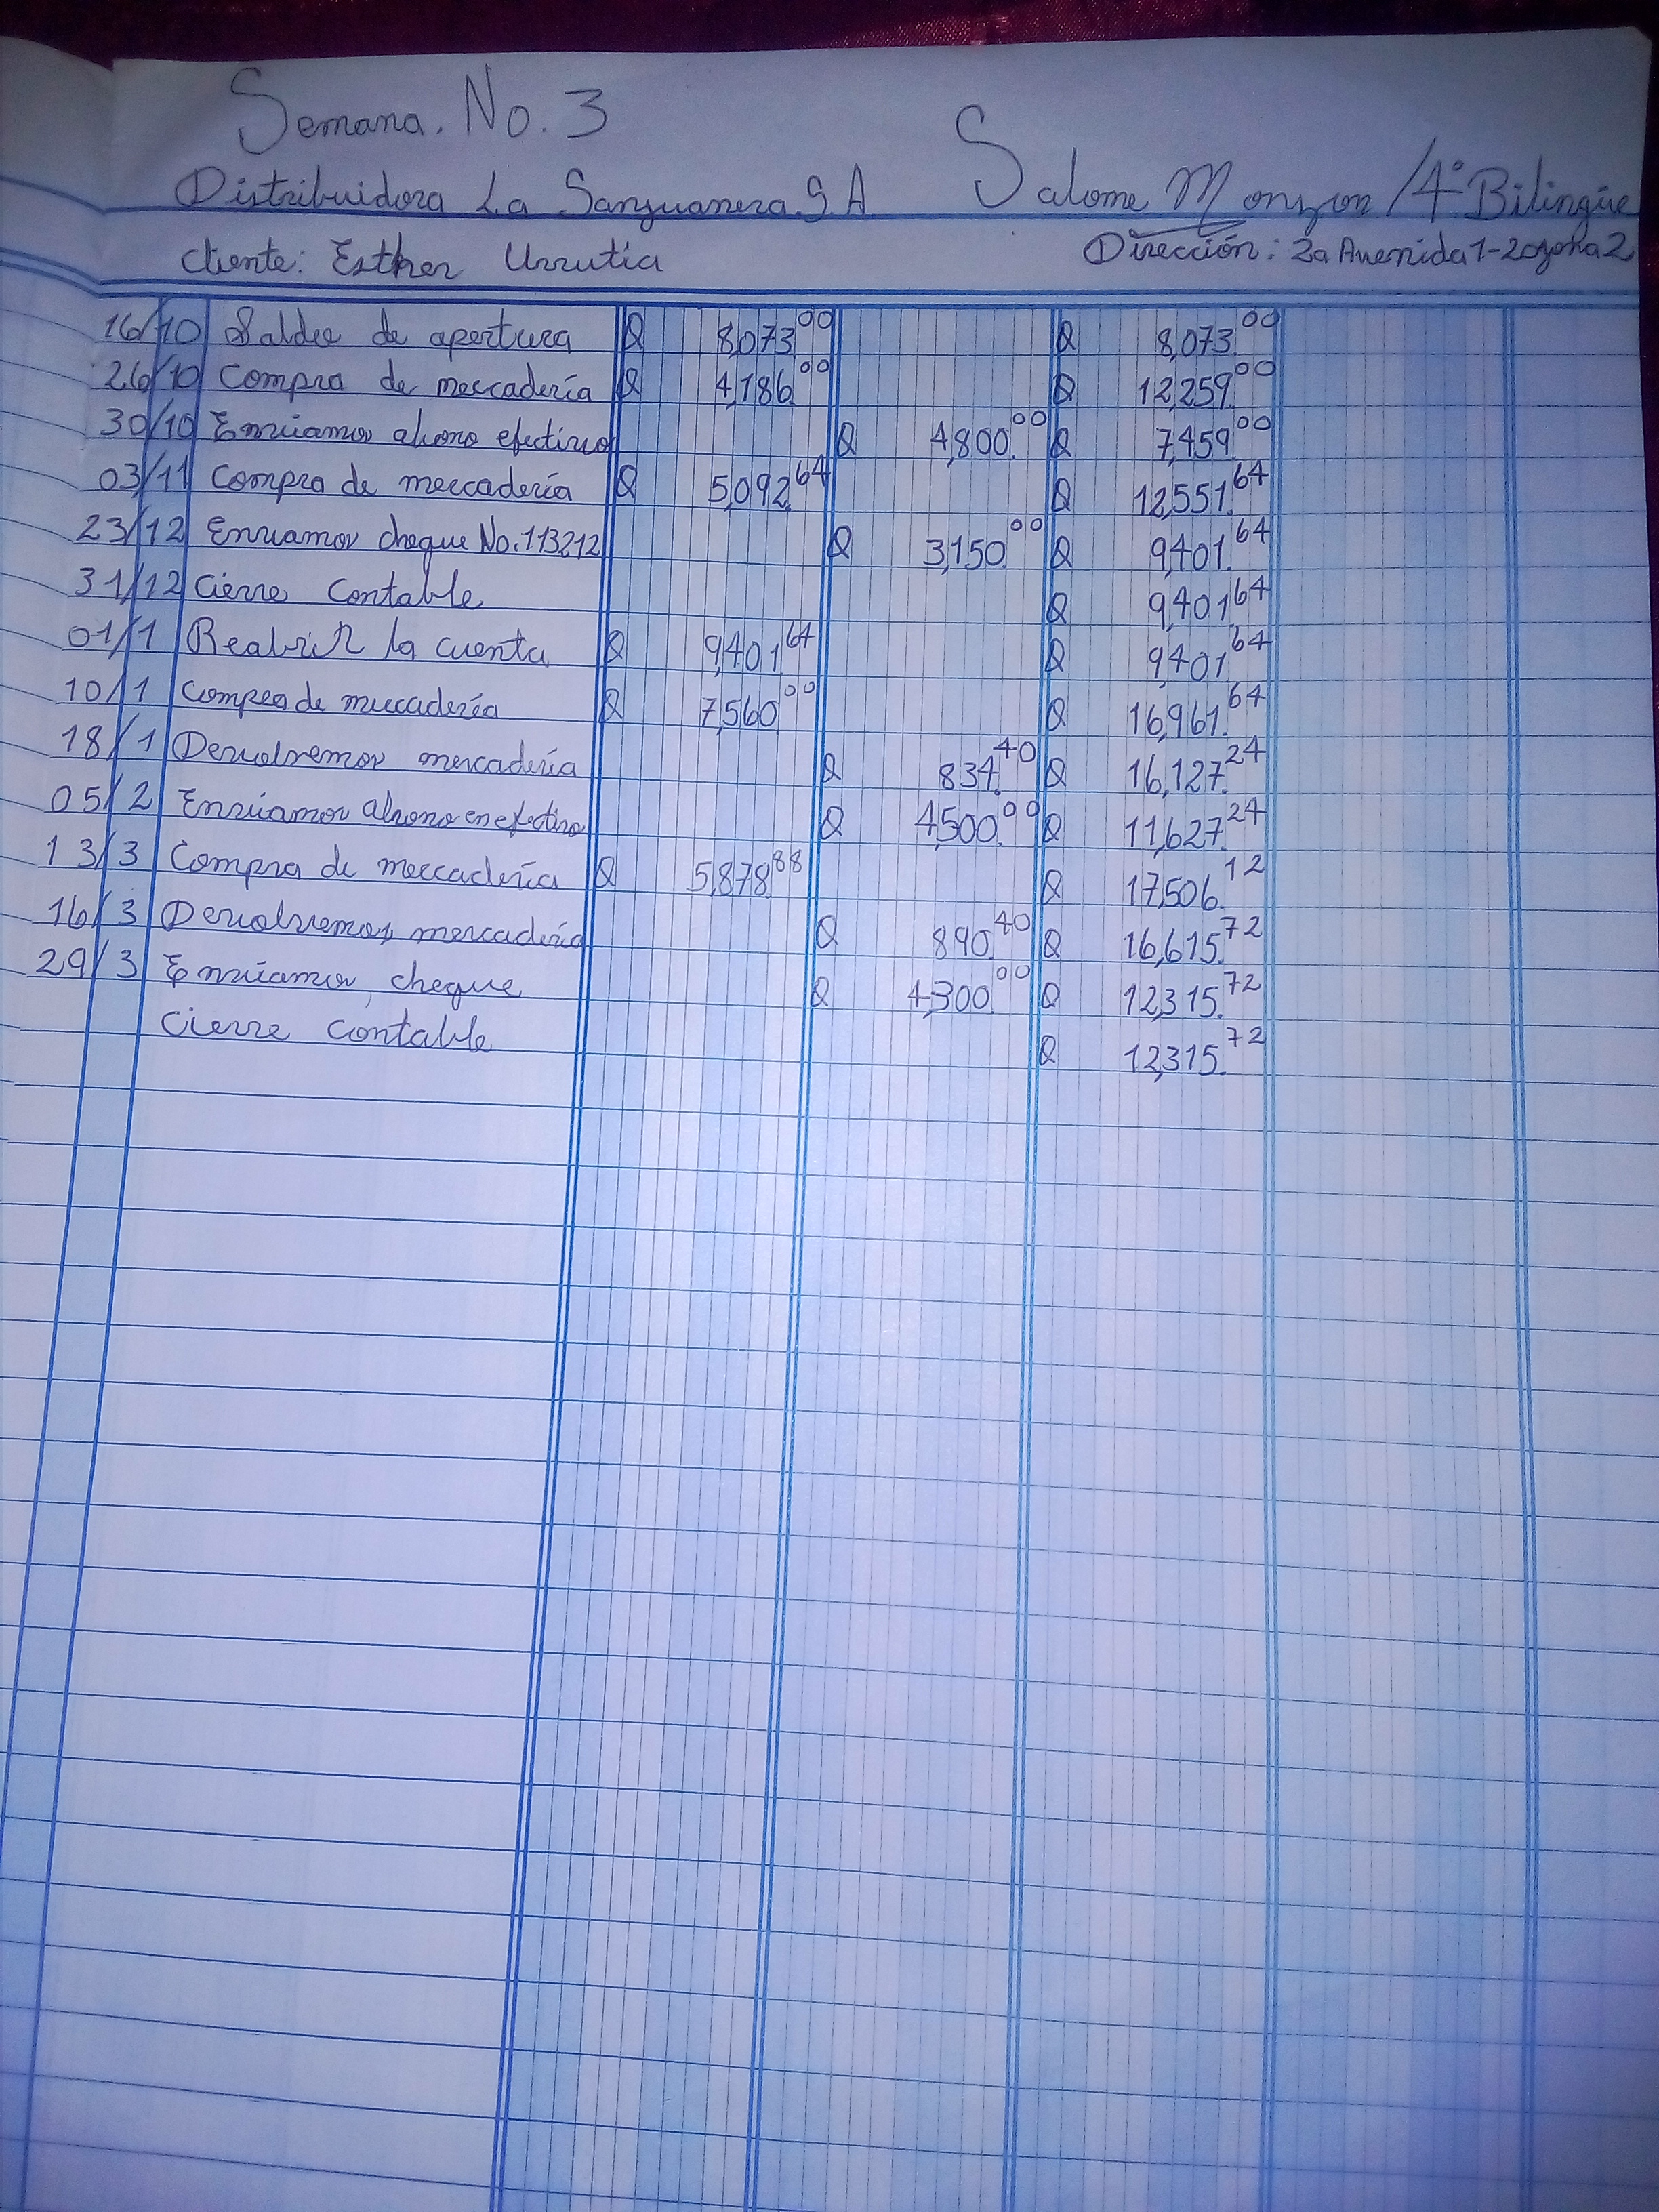 Semana. No. 3
Distribuidora La Sanjuanera. S.A. Salome Monzon / 4° Bilingüe
Cliente: Esther Urrutia Dirección: 2a Avenida 1-20 zona 2
16/10 Saldo de apertura Q 8,073.00 Q 8,073.00
26/10 Compra de mercadería Q 4,186.00 Q 12,259.00
30/10 Enviamos abono efectivo Q 4,800.00 Q 7,459.00
03/11 Compra de mercadería Q 5,092.64 Q 12,551.64
23/12 Enviamos cheque No. 113212 Q 3,150.00 Q 9,401.64
31/12 Cierre Contable Q 9,401.64
01/1 Reabrir la cuenta Q 9,401.64 Q 9,401.64
10/1 Compra de mercadería Q 7,560.00 Q 16,961.64
18/1 Devolvemos mercadería Q 834.40 Q 16,127.24
05/2 Enviamos Abono en efectivo Q 4,500.00 Q 11,627.24
13/3 Compra de mercadería Q 5,878.88 Q 17,506.12
16/3 Devolvemos mercadería Q 890.40 Q 16,615.72
29/3 Enviamos cheque Q 4,300.00 Q 12,315.72
Cierre contable Q 12,315.72